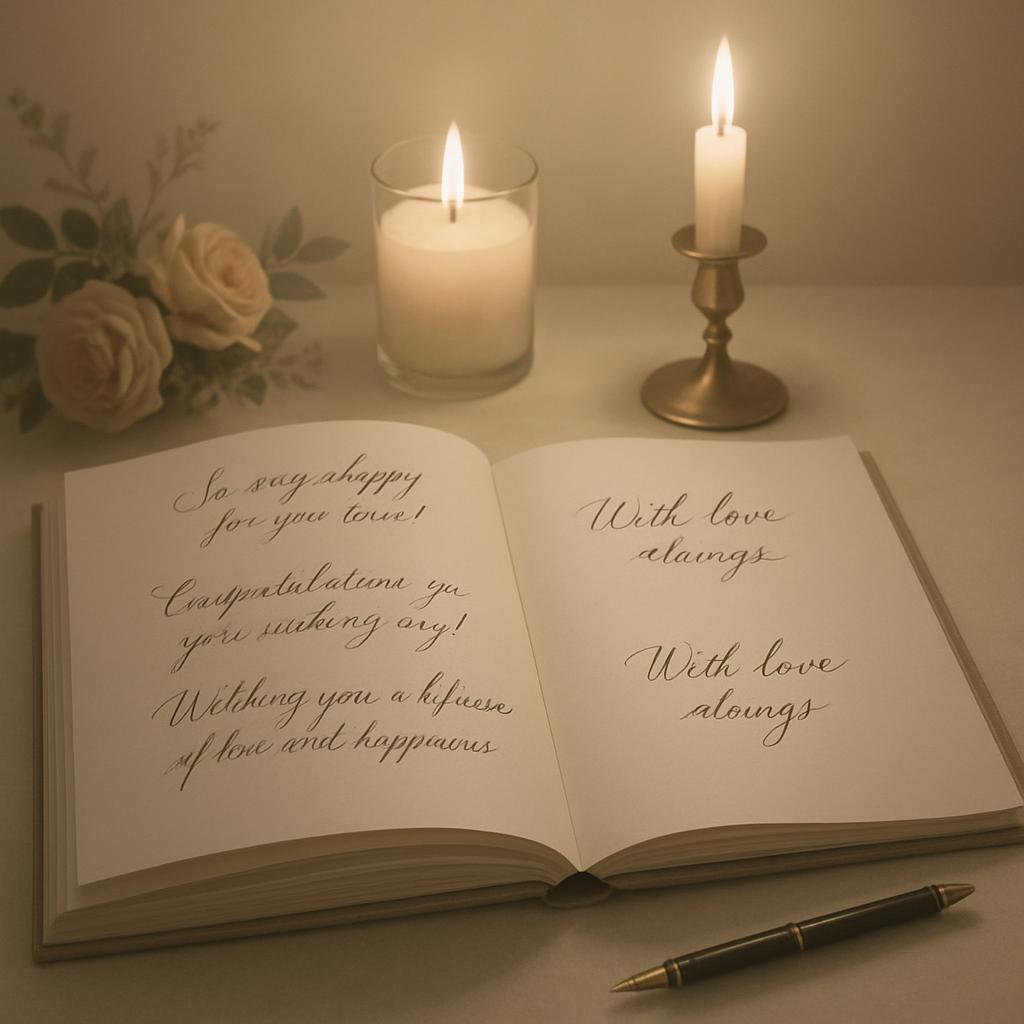 So say ahappy
for you tove!
Congpatulationn yu
you're suitking any!
Witching you a kificese
of love and happnaewus
With love
alaings
With love
aloungs